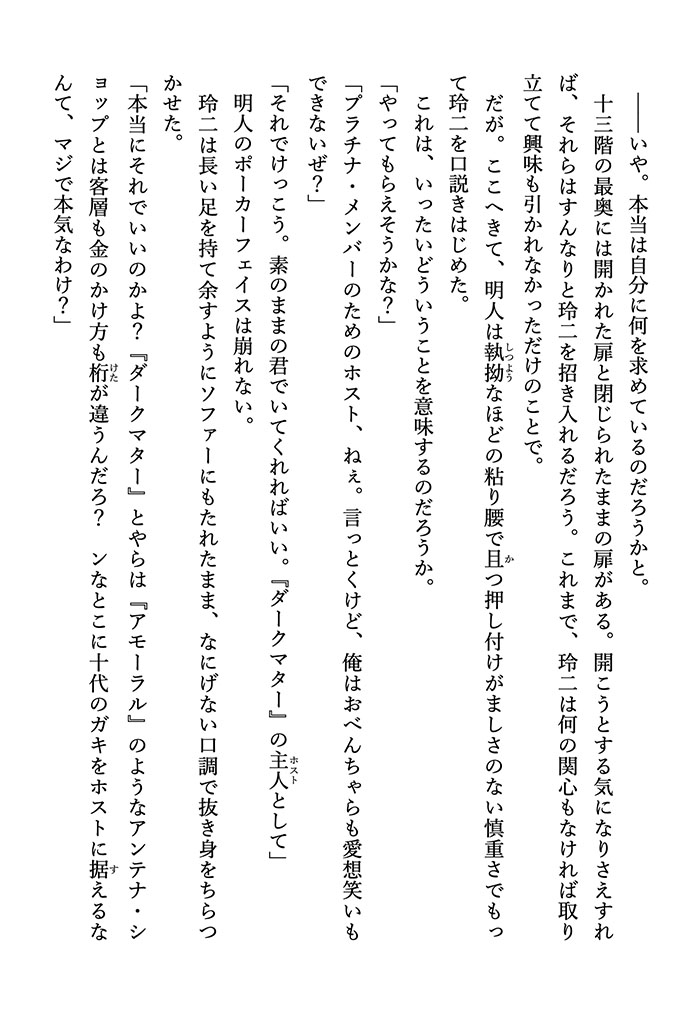 ――いや。本当は自分に何を求めているのだろうかと。
十三階の最奥には開かれた扉と閉じられたままの扉がある。開こうとする気になりさえすれ
ば、それらはすんなりと玲二を招き入れるだろう。これまで、玲二は何の関心もなければ取り
立てて興味も引かれなかっただけのことで。
だが。ここへきて、明人は執拗しつようなほどの粘り腰で且かつ押し付けがましさのない慎重さでもっ
て玲二を口説きはじめた。
これは、いったいどういうことを意味するのだろうか。
「やってもらえそうかな？」
「プラチナ・メンバーのためのホスト、ねぇ。言っとくけど、俺はおべんちゃらも愛想笑いも
できないぜ？」
「それでけっこう。素のままの君でいてくれればいい。『ダークマター』の主人ホストとして」
明人のポーカーフェイスは崩れない。
玲二は長い足を持て余すようにソファーにもたれたまま、なにげない口調で抜き身をちらつ
かせた。
「本当にそれでいいのかよ？『ダークマター』とやらは『アモーラル』のようなアンテナ・シ
ョップとは客層も金のかけ方も桁けたが違うんだろ？　ンなとこに十代のガキをホストに据すえるな
んて、マジで本気なわけ？」